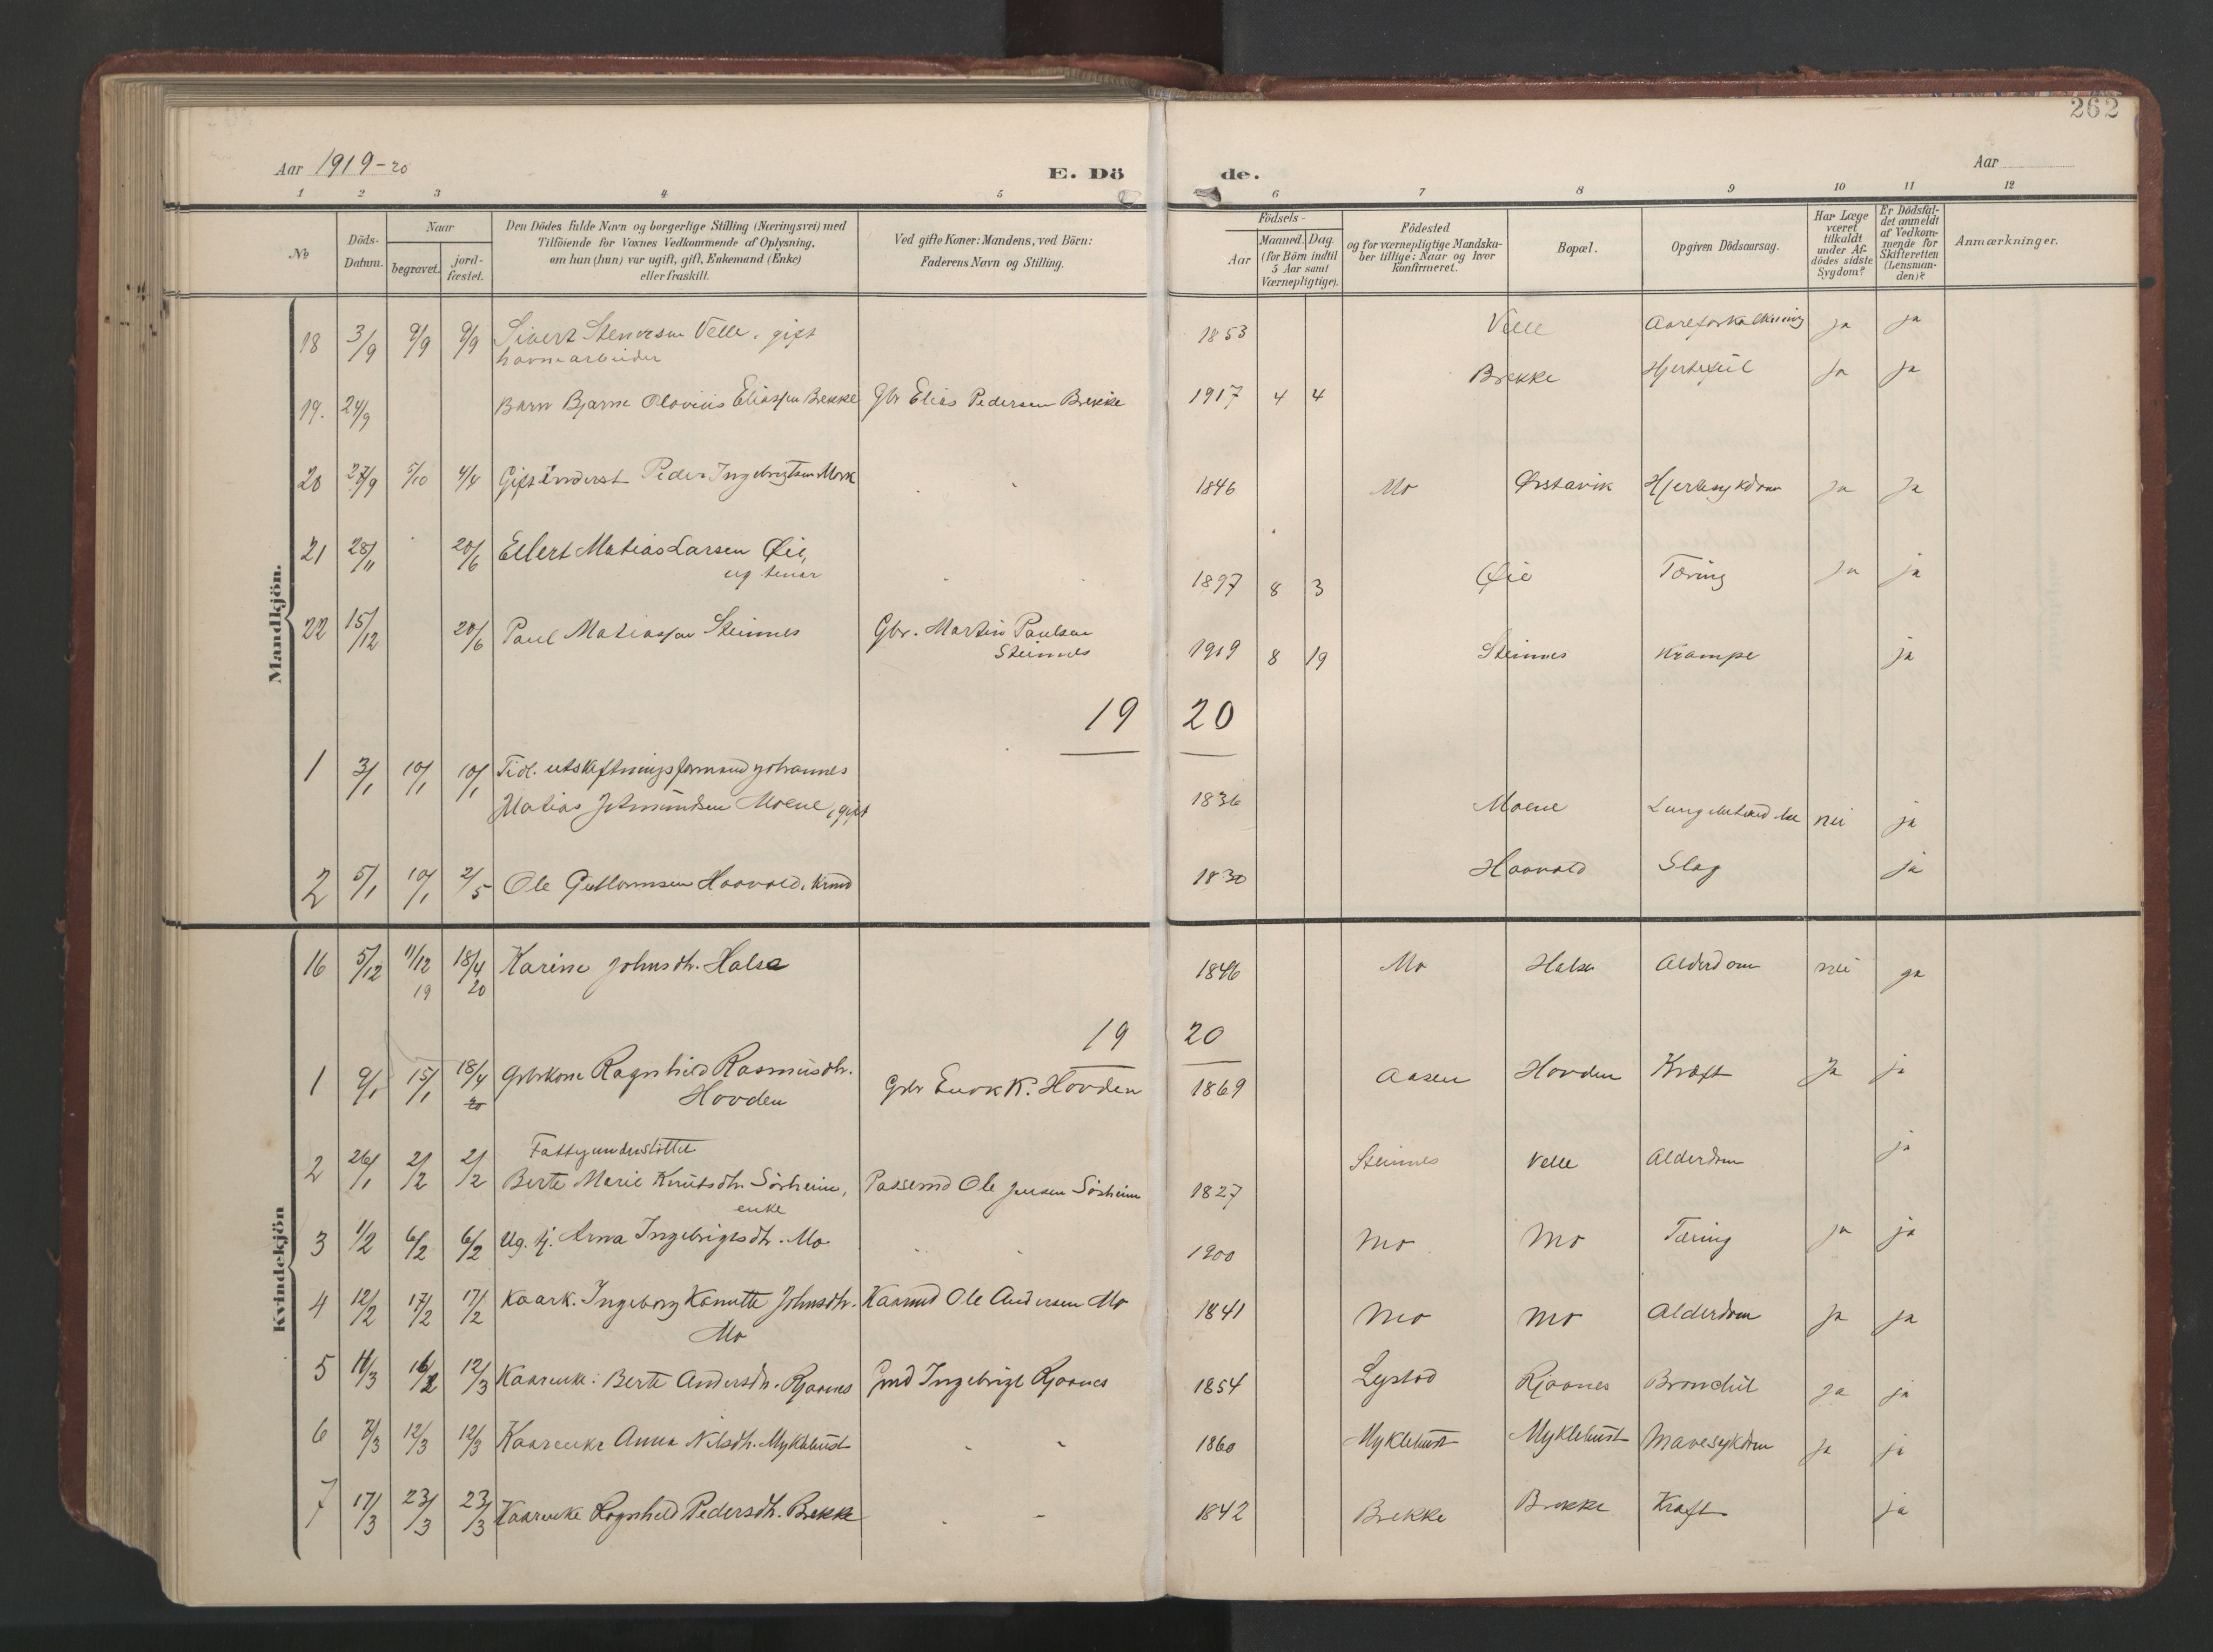 262
Aar 1919-20
E. Dö de.
Aar
1 2 3 4 5 6 7 8 9 10 11 12
№
Döds-
Datum.
Naar
begravet.
jord-
fæstet.
Den Dödes fulde Navn og borgerlige Stilling (Næringsvei) med
Tilföiende for Voxnes Vedkommende af Oplysning,
om han (hun) var ugift, gift, Enkemand (Enke)
eller fraskilt.
Ved gifte Koner: Mandens, ved Börn:
Faderens Navn og Stilling.
Födsels-
Aar
Maaned. Dag.
(for Börn indtil
5 Aar samt
Værnepligtige).
Födested
og for værnepligtige Mandska-
ber tillige: Naar og hvor
konfirmeret.
Bopæl.
Opgiven Dödsaarsag.
Har Læge
været
tilkaldt
under Af-
dödes sidste
Sygdom?
Er Dödsfal-
det anmeldt
af Vedkom-
mende for
Skifteretten
(Lensman-
den)?
Anmærkninger.
Mandkjön.
18 3/9 9/9 9/9 Sivert Stenersen Velle, gift 1853 Velle Aareforkalkning ja ja
havnearbeider
19. 24/9 Barn Bjarne Olovius Eliassen Brekke Gbr Elias Pedersen Brekke 1917 4 4 Brekke Hjertefeil ja ja
20 27/9 5/10 4/4 Gift inderst Peder Ingebrigtsen Mork 1846 Mo Ørstavik Hjertesykdom ja ja
21 28/11 20/6 Eilert Matias Larsen Øie, 1897 8 3 Øie Tæring ja ja
ug tener
22 15/12 20/6 Paul Matiassen Steinnes Gbr. Martin Paulsen 1919 8 19 Steinnes Krampe ja
Steinnes
19 20
1 3/1 10/1 10/1 Tidl. utskiftningsformand Johannes
Matias Jetmundsen Moene, gift 1836 Moene nei ja
2 5/1 10/1 2/5 Ole Guttormsen Haavold, 1830 Haavold Slag ja
Kvindekjön
16 5/12 11/12 18/4 Karine Johnsdtr. Halse 1846 Mo Halse Alderdom nei ja
19 20
19 20
1 9/1 15/1 18/4 Gbrkone Ragnhild Rasmusdtr. Gbr Enok K. Hovden 1869 Aasen Hovden Kræft ja ja
20 Hovden
Fattigunderstöttet
2 26/1 2/2 2/2 Berte Marie Knutsdtr. Sörheim, Ole Jensen Sörheim 1827 Steinnes Velle Alderdom ja
enke
3 1/2 6/2 6/2 Ug. tj. Anna Ingebrigtsdtr. Mo 1900 Mo Mo Tæring ja ja
4 12/2 17/2 17/2 Kaark. Ingeborg Kanutte Johnsdtr. Kaarmd Ole Andersen Mo 1841 Mo Mo Alderdom ja ja
Mo
5 11/3 16/2 12/3 Kaarenke: Berte Andersdtr. Rjaanes Gmd Ingebrigt Rjaanes 1854 Rjaanes Bronchit ja ja
6 7/3 12/3 12/3 Kaarenke Anna Nilsdtr. Myklebust 1860 Myklebust Myklebust Mavesykdom ja ja
7 17/3 23/3 23/3 Kaarenke Ragnhild Pedersdtr. Brekke 1842 Brekke Brekke Kræft ja